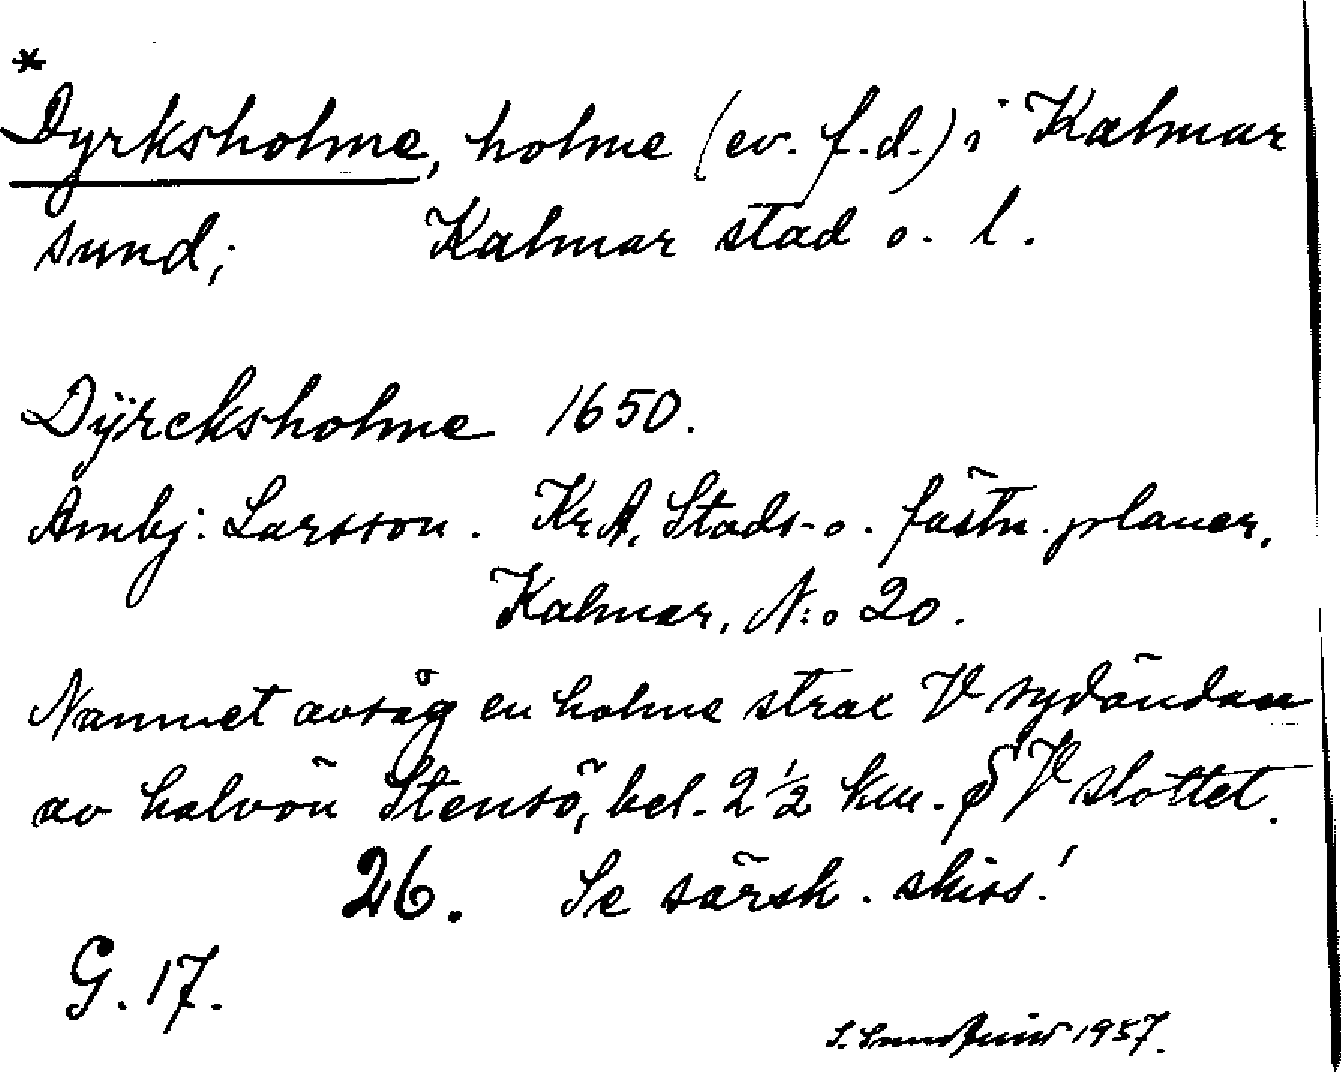 *
Dyrksholme, holme (ev. f.d.) i Kalmar
sund; Kalmar stad o. l.
Dÿrcksholme 1650.
Ambj: Larsson. KrA, Stads- o. fästn. planer,
Kalmar, N:o 20.
Namnet avsåg en holme strax V sydändan
av halvön Stensö, bel. 2 ½ km. S V slottet.
26. Se särsk. skiss!
G. 17.
S. 1957.